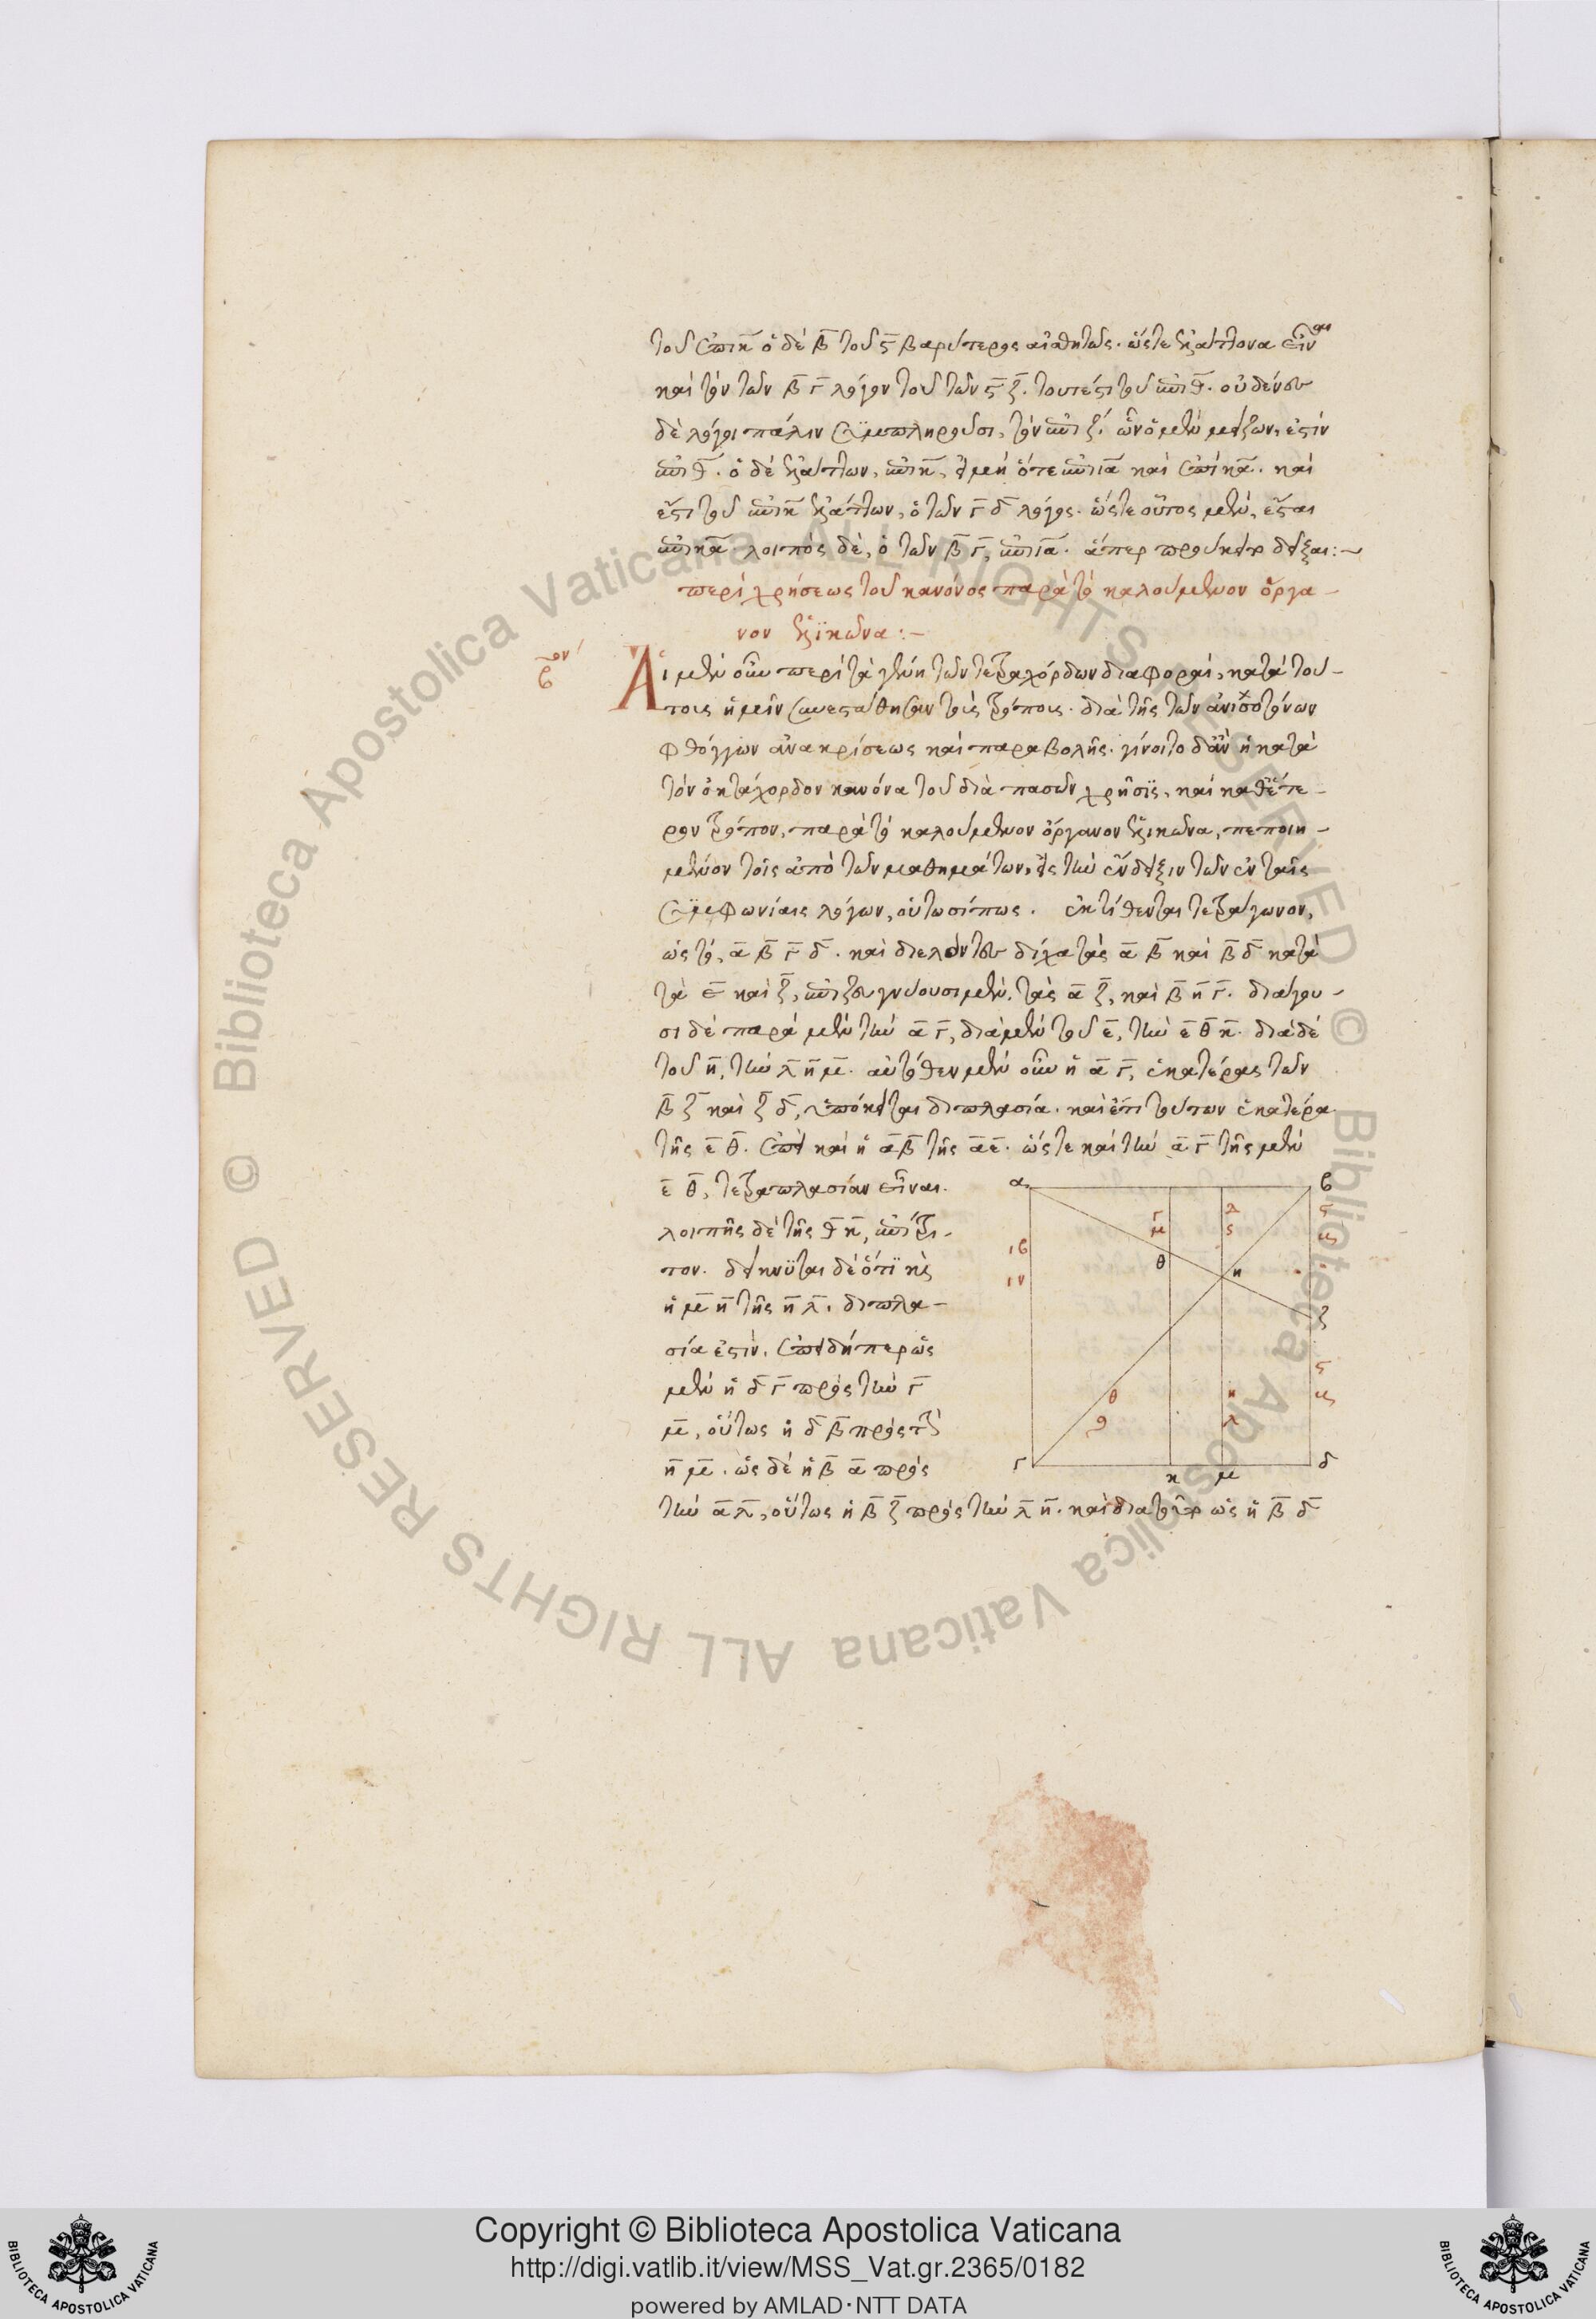 τοῦ ἐπὶ κ̄ ὁ δὲ β̄ τοῦ ς̄ βαρύτερος αἰσθητῶς. ὥστε ἐλάττονα εἶναι
καὶ τὸν τῶν β̄ γ̄ λόγον τοῦ τῶν ς̄ ζ̄. τουτέστι τοῦ ἐπὶ θ̄. οὐδένες
δὲ λόγοι πάλιν συμπληροῦσι, τὸν ἐπὶ ζ. ὧν ὁ μὲν μείζων, ἐστὶν
ἐπὶ θ̄. ὁ δὲ ἐλάττων, ἐπὶ κ̄, εἰ μὴ ὅ τε ἐπὶ ια̅ καὶ ἐπὶ κα̅. καί
ἐστι τοῦ ἐπὶ κ̄ ἐλάττων, ὁ τῶν γ̄ δ̄ λόγος. ὥστε οὗτος μὲν, ἔσται
ἐπὶ κα̅. λοιπὸς δὲ, ὁ τῶν β̄ γ̄, ἐπὶ ια̅. ἅπερ προύκειτο δεῖξαι:~
περὶ χρήσεως τοῦ κανόνος παρὰ τὸ καλούμενον ὄργα-
νον ἑλϊκῶνα:~
β̅ον
Αἱ μὲν οὖν περὶ τὰ γένη τῶν τετραχόρδων διαφοραὶ, κατὰ τού-
τοις ἡμῖν συνεστάθησαν τοῖς τρόποις. διὰ τῆς τῶν ἀνισοτόνων
φθόγγων ἀνακρίσεως καὶ παραβολῆς. γίνοιτο δ' ἂν ἡ κατὰ
τὸν ὀκτάχορδον κανόνα τοῦ διὰ πασῶν χρῆσϊς, καὶ καθ' ἕτε-
ρον τρόπον, παρὰ τὸ καλούμενον ὄργανον ἑλικῶνα, πεποιη-
μένον τοῖς ἀπὸ τῶν μαθημάτων, εἰς τὴν ἔνδειξιν τῶν ἐν ταῖς
συμφωνίαις λόγων, οὑτωσί πως. ἐκτίθενται τετράγωνον,
ὡς τὸ, ᾱ β̄ γ̄ δ̄. καὶ διελόντες δίχα τὰς ᾱ β̄ καὶ β̄ δ̄ κατὰ
τὰ ε̄ καὶ ζ̄, ἐπιζευγνύουσι μὲν, τὰς ᾱ ζ̄, καὶ β̄ η̄ γ̄. διάγου-
σι δὲ παρὰ μὲν τὴν ᾱ γ̄, διὰ μὲν τοῦ ε̄, τὴν ε̄ θ̄ κ̄. διὰ δὲ
τοῦ η̄, τὴν λ̄ η̄ μ̄. αὐτόθεν μὲν οὖν ἡ ᾱ γ̄, ἑκατέρας τῶν
β̄ ζ̄ καὶ ζ̄ δ̄, ὑπόκειται διπλασία. καὶ ἔτι τούτων ἑκατέρα
τῆς ε̄ θ̄. ἐπεὶ καὶ ἡ ᾱβ̄ τῆς ᾱε̄. ὥστε καὶ τὴν ᾱ γ̄ τῆς μὲν
ε̄ θ̄, τετραπλασίαν εἶναι.
λοιπῆς δὲ τῆς θ̄ κ̄, ἐπίτρι-
τον. δείκνϋται δὲ ὅτϊ καὶ
ἡ μ̄ η̄ τῆς η̄ λ̄. διπλα-
σία ἐστὶν. ἐπειδήπερ ὡς
μὲν ἡ δ̄ γ̄ πρὸς τὴν γ̄
μ̄, οὕτως ἡ δ̄ β̄ πρὸς τὴν
η̄ μ̄. ὡς δὲ ἡ β̄ ᾱ πρὸς
τὴν ᾱ λ̄, οὕτως ἡ β̄ ζ̄ πρὸς τὴν λ̄ η̄. καὶ διὰ τοῦτο ὡς ἡ β̄ δ̄
α β
γ μ
λ ς
ς
ιβ
θ
η
ζ
ς
θ
θ
η
λ
γ κ μ δ
Copyright © Biblioteca Apostolica Vaticana
http://digi.vatlib.it/view/MSS_Vat.gr.2365/0182
powered by AMLAD·NTT DATA
BIBLIOTECA APOSTOLICA VATICANA
BIBLIOTECA APOSTOLICA VATICANA
© Biblioteca Apostolica Vaticana ALL RIGHTS RESERVED
© Biblioteca Apostolica Vaticana ALL RIGHTS RESERVED